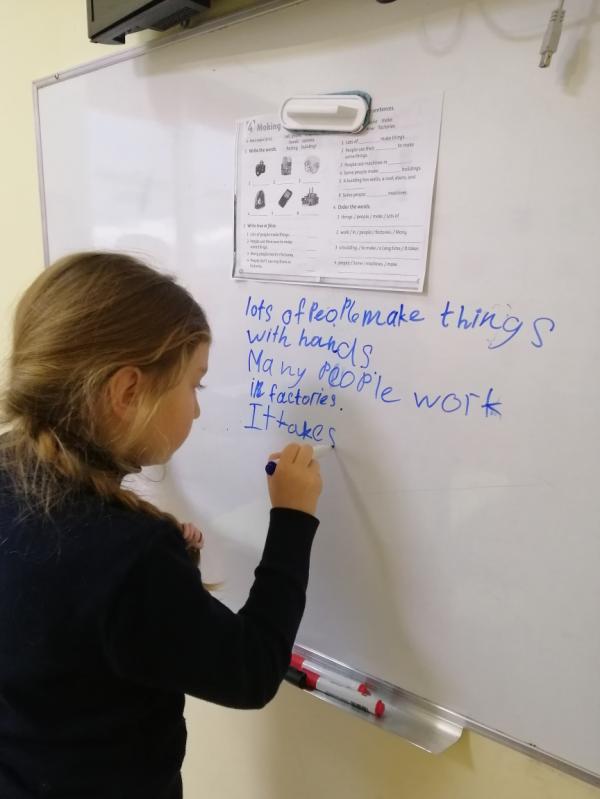 4 Making
sentences.
make
factories
1 Write the words.
1 Lots of make things.
2 People use their to make
some things.
3 People use machines in
4 Some people make buildings.
5 A building has walls, a roof, doors, and
6 Some people machines.
4 Order the words.
1 things / people / make / lots of
2 work / in / people / factories / Many
3 a building / to make / a long time / It takes
4 people / Some / machines / make
2 Write true or false.
1 Lots of people make things.
lots of People make things
with hands
Many PEOPle work
in factories.
It takes